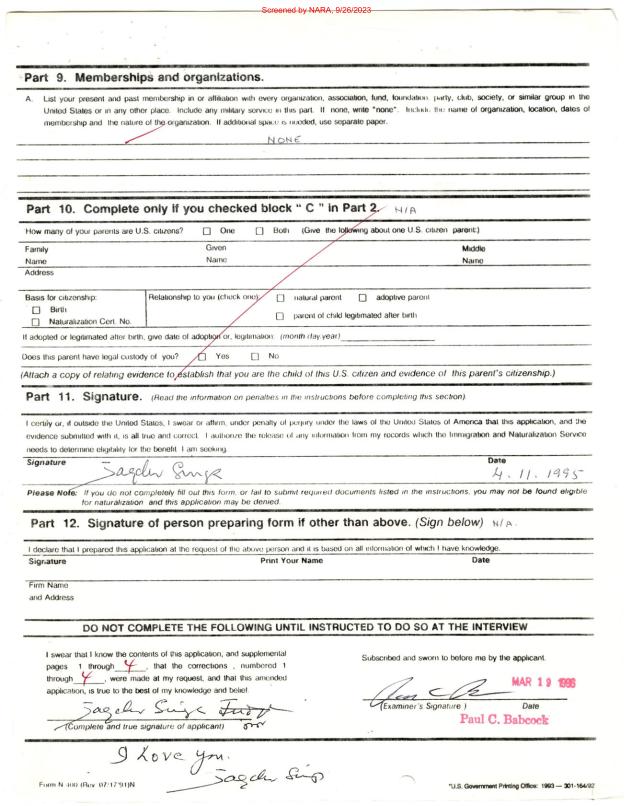 Screened by NARA, 9/26/2023
Part 9. Memberships and organizations.
A. List your present and past membership in or affiliation with every organization, association, fund, foundation, party, club, society, or similar group in the
United States or in any other place. Include any military service in this part. If none, write "none". Include the name of organization, location, dates of
membership and the nature of the organization. If additional space is needed, use separate paper.
NONE
Part 10. Complete only if you checked block " C " in Part 2. N/A
How many of your parents are U.S. citizens? One Both (Give the following about one U.S. citizen parent:)
Family Given Middle
Name Name Name
Address
Basis for citizenship: Relationship to you (check one): natural parent adoptive parent
Birth
parent of child legitimated after birth
Naturalization Cert. No.
If adopted or legitimated after birth, give date of adoption or, legitimation: (month day year)
Does this parent have legal custody of you? Yes No
(Attach a copy of relating evidence to establish that you are the child of this U.S. citizen and evidence of this parent's citizenship.)
Part 11. Signature. (Read the information on penalties in the instructions before completing this section)
I certify or, if outside the United States, I swear or affirm, under penalty of perjury under the laws of the United States of America that this application, and the
evidence submitted with it, is all true and correct. I authorize the release of any information from my records which the Immigration and Naturalization Service
needs to determine eligibility for the benefit I am seeking.
Signature Date
4.11.1995
Please Note: If you do not completely fill out this form, or fail to submit required documents listed in the instructions, you may not be found eligible
for naturalization and this application may be denied.
Part 12. Signature of person preparing form if other than above. (Sign below) N/A.
I declare that I prepared this application at the request of the above person and it is based on all information of which I have knowledge.
Signature Print Your Name Date
Firm Name
and Address
DO NOT COMPLETE THE FOLLOWING UNTIL INSTRUCTED TO DO SO AT THE INTERVIEW
I swear that I know the contents of this application, and supplemental
pages 1 through 4, that the corrections, numbered 1
through 4, were made at my request, and that this amended
application, is true to the best of my knowledge and belief.
(Complete and true signature of applicant)
Subscribed and sworn to before me by the applicant.
MAR 19 1996
(Examiner's Signature) Date
Paul C. Babcock
I Love you.
Form N-400 (Rev. 07/17/91)N
*U.S. Government Printing Office: 1993 — 301-164/92